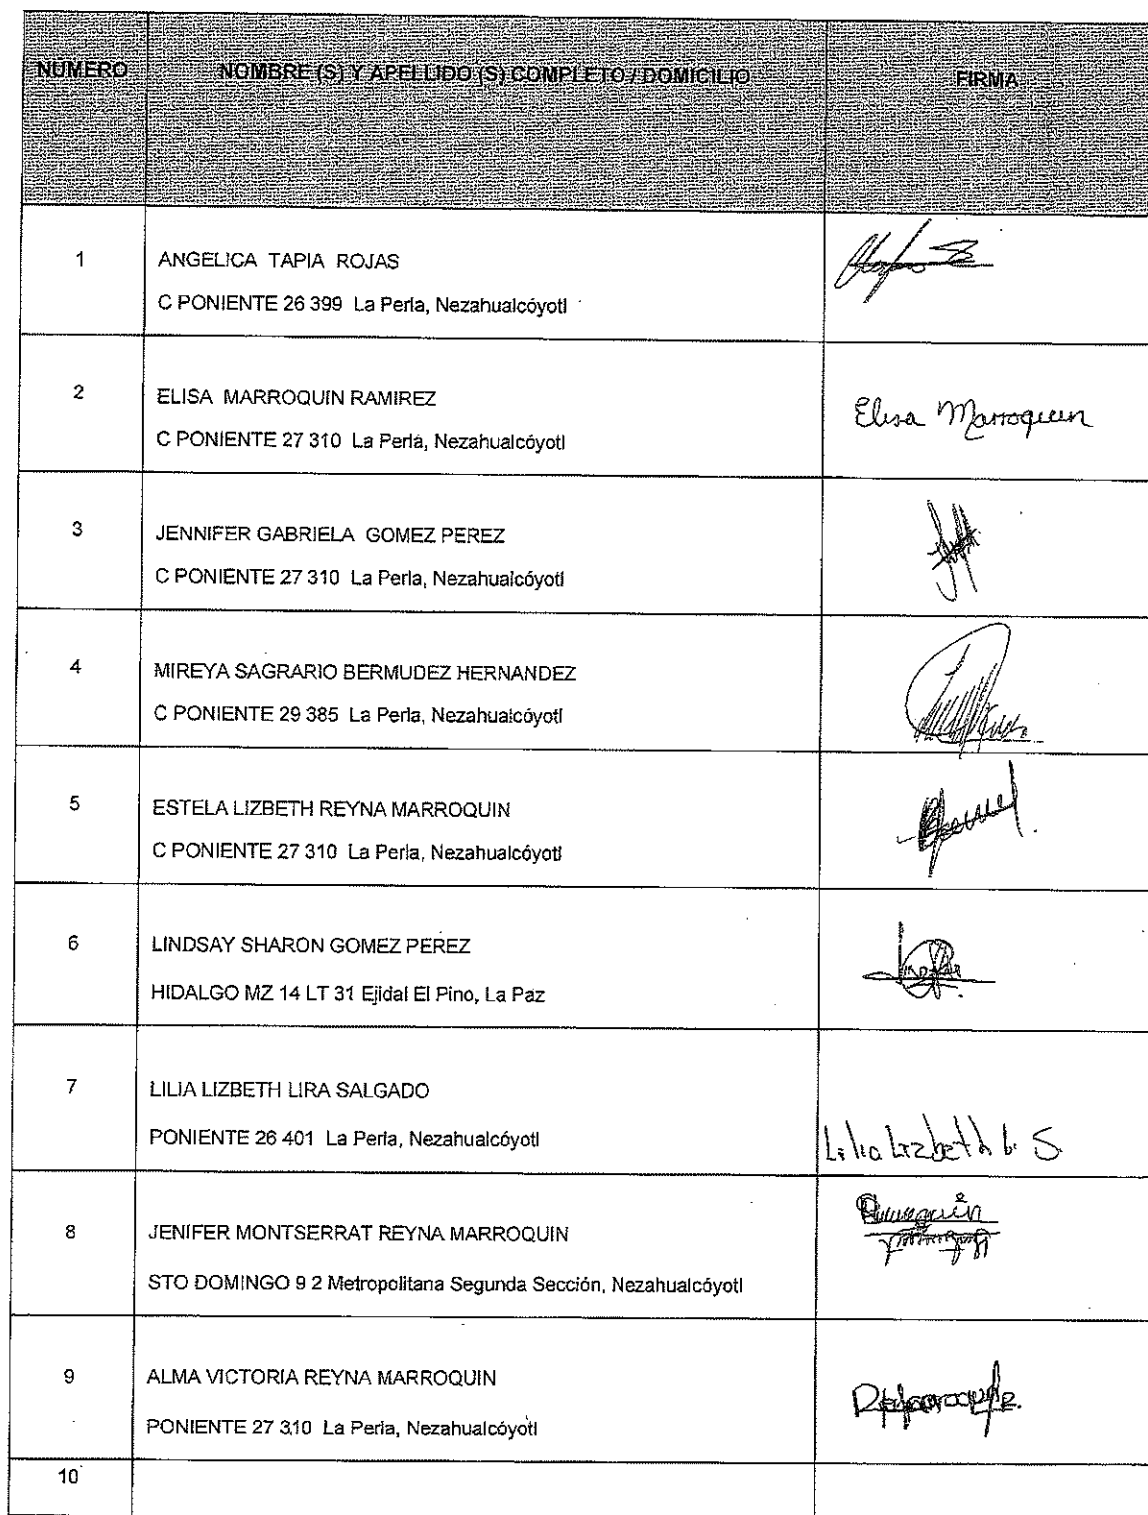 NUMERO NOMBRE (S) Y APELLIDO (S) COMPLETO / DOMICILIO FIRMA
1 ANGELICA TAPIA ROJAS
C PONIENTE 26 399 La Perla, Nezahualcóyotl
2 ELISA MARROQUIN RAMIREZ Elisa Marroquin
C PONIENTE 27 310 La Perla, Nezahualcóyotl
3 JENNIFER GABRIELA GOMEZ PEREZ
C PONIENTE 27 310 La Perla, Nezahualcóyotl
4 MIREYA SAGRARIO BERMUDEZ HERNANDEZ
C PONIENTE 29 385 La Perla, Nezahualcóyotl
5 ESTELA LIZBETH REYNA MARROQUIN
C PONIENTE 27 310 La Perla, Nezahualcóyotl
6 LINDSAY SHARON GOMEZ PEREZ
HIDALGO MZ 14 LT 31 Ejidal El Pino, La Paz
7 LILIA LIZBETH LIRA SALGADO
PONIENTE 26 401 La Perla, Nezahualcóyotl Lilia Lizbeth L. S.
8 JENIFER MONTSERRAT REYNA MARROQUIN
STO DOMINGO 9 2 Metropolitana Segunda Sección, Nezahualcóyotl
9 ALMA VICTORIA REYNA MARROQUIN
PONIENTE 27 310 La Perla, Nezahualcóyotl
10